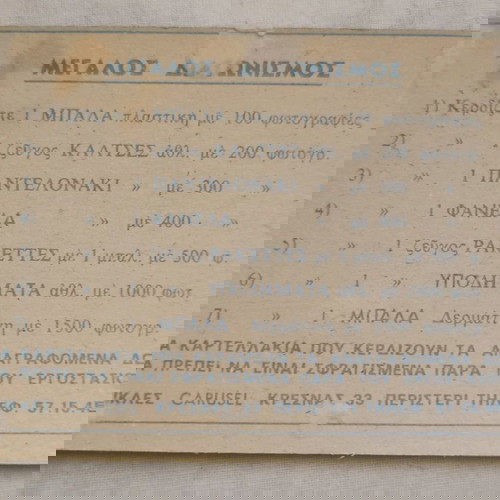 ΜΕΓΑΛΟΣ ΔΙ ΩΝΙΣΜΟΣ
1) Κερδίζετε 1 ΜΠΑΛΑ πλαστικὴ μὲ 100 φωτογραφίες
2) » 1 ζεῦγος ΚΑΛΤΣΕΣ ἀθλ. μὲ 200 φωτόγρ.
3) » 1 ΠΑΝΤΕΛΟΝΑΚΙ » μὲ 300 »
4) » 1 ΦΑΝΕΛΑ » μὲ 400 »
5) » 1 ζεῦγος ΡΑΚΕΤΤΕΣ μὲ 1 μπαλ. μὲ 500 φ.
6) » 1 » ΥΠΟΔΗΜΑΤΑ ἀθλ. μὲ 1000 φωτ.
7) » 1 ΜΠΑΛΑ Δερματίνη μὲ 1500 φωτογρ.
ΚΑΡΤΕΛΛΑΚΙΑ ΠΟΥ ΚΕΡΔΙΖΟΥΝ ΤΑ ΑΝ
ΑΓΡΑΦΟΜΕΝΑ ΠΡΕΠΕΙ ΝΑ ΕΙΝΑΙ ΣΦΡΑΓΙΣΜΕΝΑ ΠΑΡΑ
ΤΟΥ ΕΡΓΟΣΤΑΣΙΟ
ΙΚΛΕΣ CARUSEL ΚΡΕΣΝΑΣ 33 ΠΕΡΙΣΤΕΡΙ ΤΗΛΕΦ. 57.15.42